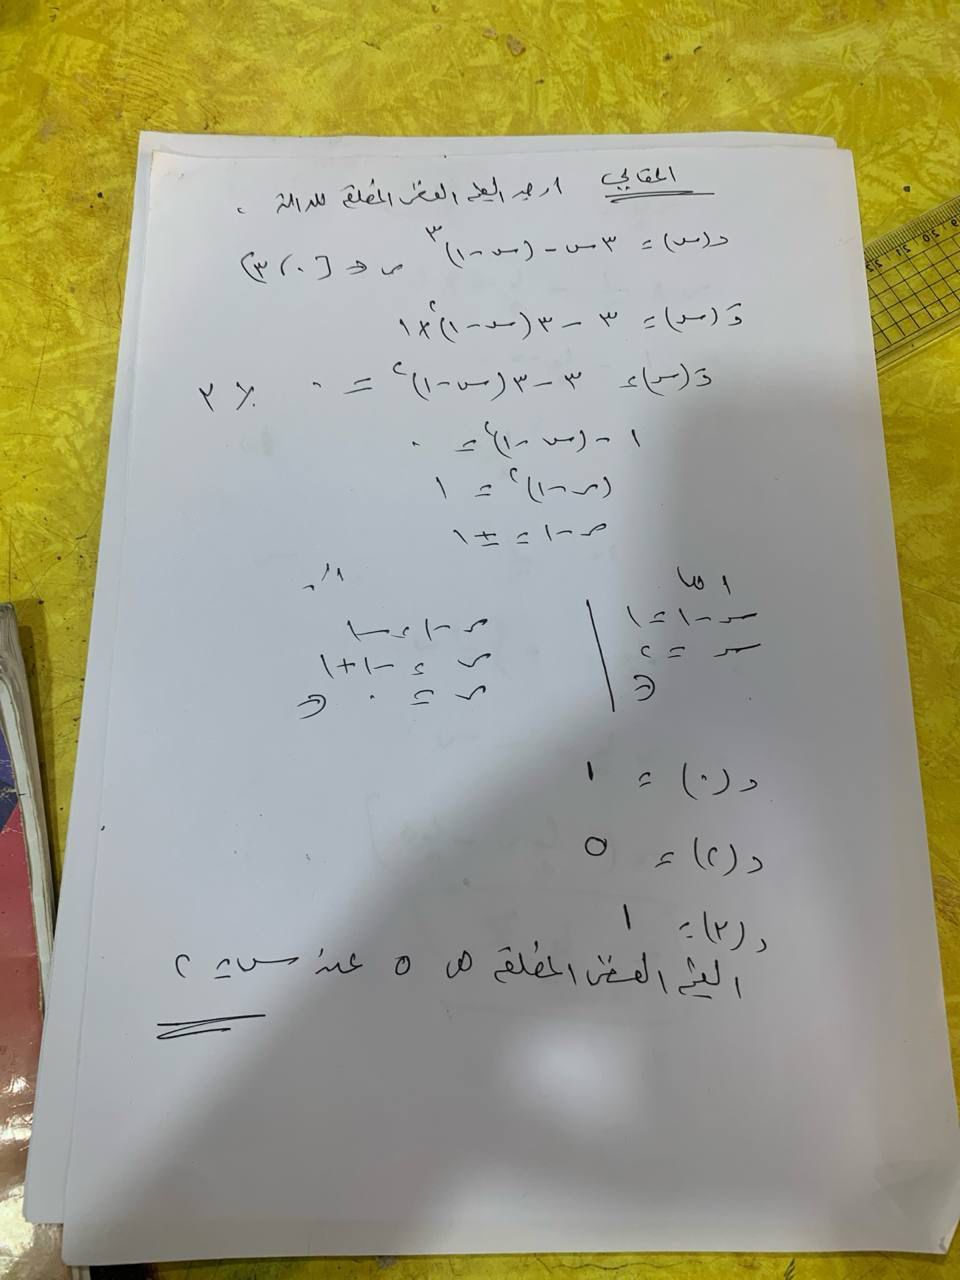 المقالي اوجد القيم العظمى المطلقة للدالة .
د(س) = ٣س - (س-١)^٣ س ∈ [٠،٣]
د َ(س) = ٣ - ٣(س-١)^٢ × ١
د َ(س) = ٣ - ٣(س-١)^٢ = ٠ ٪ ٣
١ - (س-١)^٢ = ٠
(س-١)^٢ = ١
س-١ = ±١
اما أو
س-١ = ١ س-١ = -١
س = ٢ س = -١+١
س = ٠
د(٠) = ١
د(٢) = ٥
د(٣) = ١
القيم العظمى المطلقة هي ٥ عند س = ٢
20 21 22